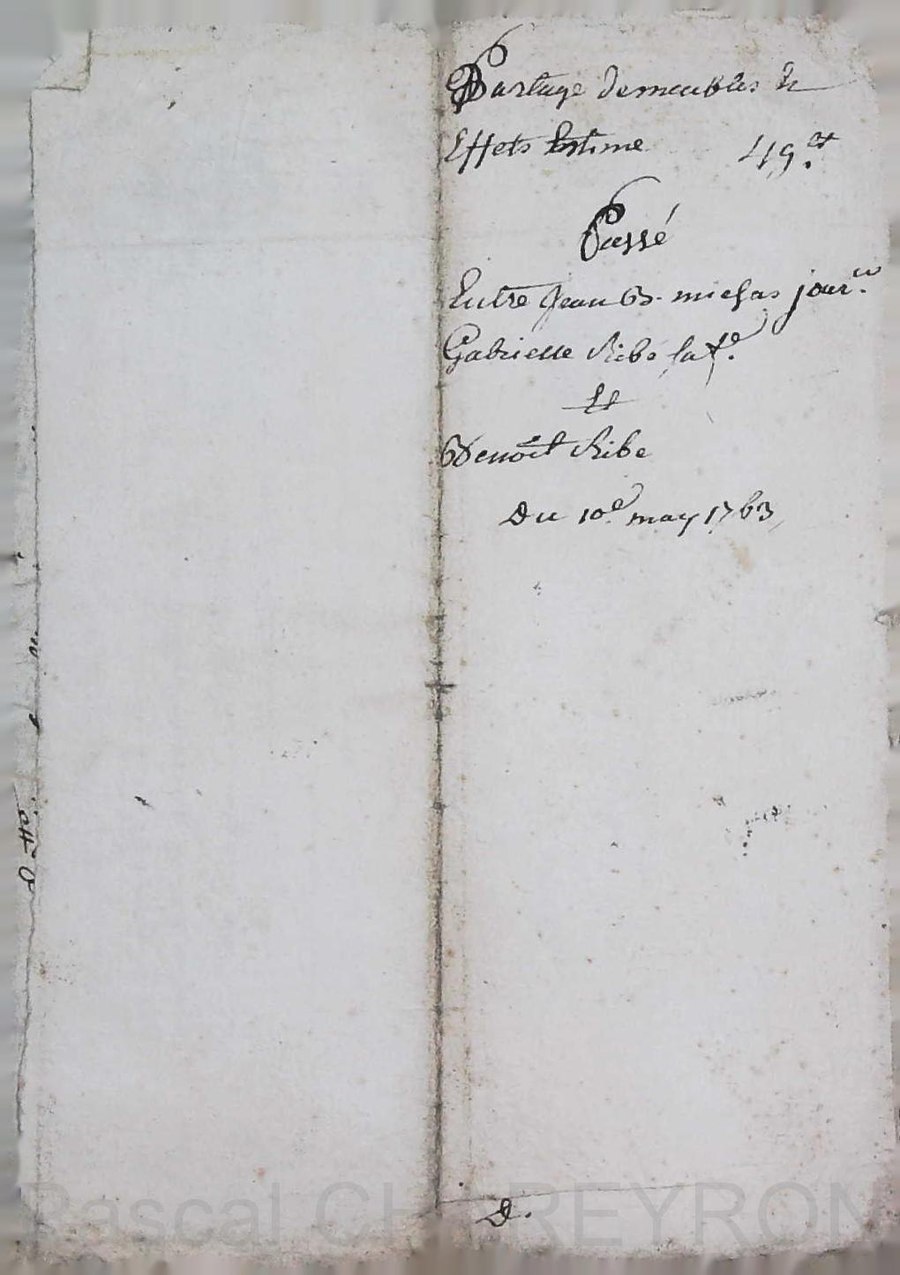 Partage de meubles &
Effets Estimé 49.tt
Passé
Entre Jean B. michas jour.
Gabrielle Ribe sa f.e
Et
Benoît Ribe
Du 10.e may 1763
D.
Pascal CHAREYRON